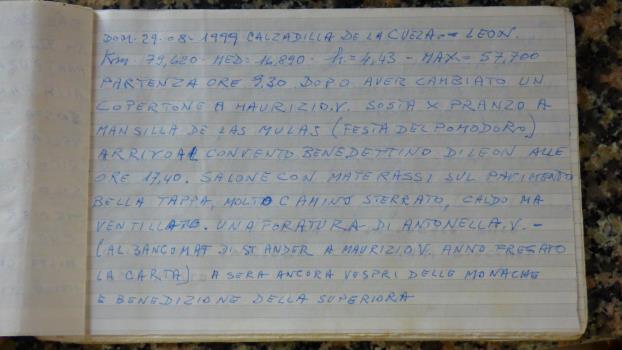 DOM. 29-08-1999 CALZADILLA DE LA CUEZA - LEON.
Km: 79,620 - MED = 16,890 - h = 4,43 - MAX = 57,700
PARTENZA ORE 9.30 DOPO AVER CAMBIATO UN
COPERTONE A MAURIZIO.V. SOSTA X PRANZO A
MANSILLA DE LAS MULAS (FESTA DEL POMODORO)
ARRIVO AL CONVENTO BENEDETTINO DI LEON ALLE
ORE 17,40. SALONE CON MATERASSI SUL PAVIMENTO
BELLA TAPPA, MOLTO CAMINO STERRATO, CALDO MA
VENTILLATO. UNA FORATURA DI ANTONELLA.V. -
(AL BANCOMAT DI ST ANDER A MAURIZIO.V. ANNO FREGATO
LA CARTA) A SERA ANCORA VESPRI DELLE MONACHE
E BENEDIZIONE DELLA SUPERIORA